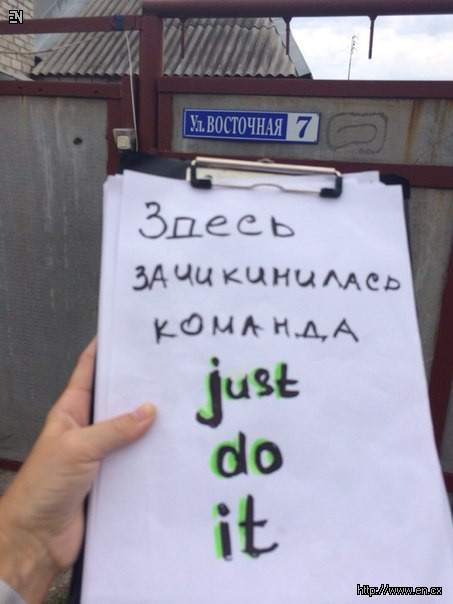 EN
Ул. ВОСТОЧНАЯ 7
Здесь
зачикинилась
команда
just
do
it
http://www.en.cx